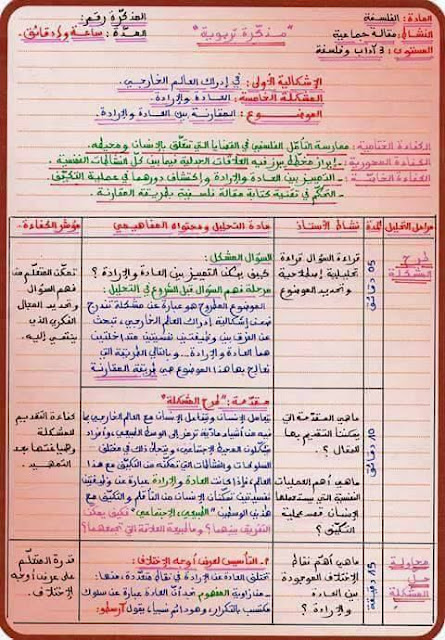 المادة: الفلسفة
النشاط: مقالة جماعية
المستوى: 3 آداب وفلسفة
"مذكرة تربوية"
المذكرة رقم:
المدة: ساعة و 5 دقائق.
الإشكالية الأولى: في إدراك العالم الخارجي.
المشكلة الخامسة: العادة والإرادة.
الموضوع: المقارنة بين العادة والإرادة.
الكفاءة الختامية: ممارسة التأمل الفلسفي في القضايا التي تتعلق بالإنسان ومحيطه.
الكفاءة المحورية: إبراز مخطط يبرز فيه العلاقات الجدلية فيما بين كل النشاطات النفسية.
الكفاءة الخاصة: - التمييز بين العادة والإرادة واكتشاف دورهما في عملية التكيف.
- التحكم في تقنية كتابة مقالة فلسفية بطريقة المقارنة.
مراحل التحليل
المدة
نشاط الأستاذ
مادة التحليل ومحتواه المفاهيمي
مؤشر الكفاءة
طرح
المشكلة
05 دقائق
قراءة السؤال قراءة
تحليلية إصطلاحية
وتحديد الموضوع
السؤال المشكل:
كيف يمكن التمييز بين العادة والإرادة؟
مرحلة فهم السؤال قبل الشروع في التحليل:
الموضوع المطروح هو عبارة عن مشكلة تندرج
ضمن إشكالية إدراك العالم الخارجي، تبحث
عن الفرق بين وظيفتين نفسيتين متداخلتين
هما العادة والإرادة... وبالتالي الطريقة التي
نعالج بها هذا الموضوع هي طريقة المقارنة
تمكن المتعلم من
فهم السؤال
وتحديد المجال
الفكري الذي
ينتمي إليه.
10 دقائق
ماهي المقدمة التي
يمكننا التقديم بها
للمقال؟
ماهي أهم العمليات
النفسية التي يستعملها
الإنسان قصد عملية
التكيف؟
مقدمة: "طرح المشكلة"
يتعامل الإنسان ويتفاعل الإنسان مع العالم الخارجي بما
فيه من أشياء مادية ترمز إلى الوسط الطبيعي، وأفراد
يشكلون المحيط الاجتماعي، ويتجلى ذلك في مختلف
السلوكات والنشاطات التي تمكنه من التكيف مع هذا
العالم، فإذا كانت العادة والإرادة عبارة عن وظيفتين
نفسيتين تمكنان الإنسان من التأقلم والتكيف مع
هذين الوسطين "الطبيعي، الاجتماعي" فكيف يمكن
التفريق بينهما؟ وما طبيعة العلاقة التي تجمعهما؟
كفاءة التقديم
للمشكلة
وصياغتها بعد
التمهيد.
محاولة
حل
المشكلة
15 دقيقة
ماهي أهم نقاط
الاختلاف الموجودة
بين العادة
والإرادة؟
1- التأسيس لعرض أوجه الاختلاف:
تختلف العادة عن الإرادة في نقاط متعددة، منها:
- من زاوية المفهوم نجد أن العادة عبارة عن سلوك
مكتسب بالتكرار، وهو دائم نسبيا، يقول أرسطو:
قدرة المتعلم
على عرض أوجه
الاختلاف.